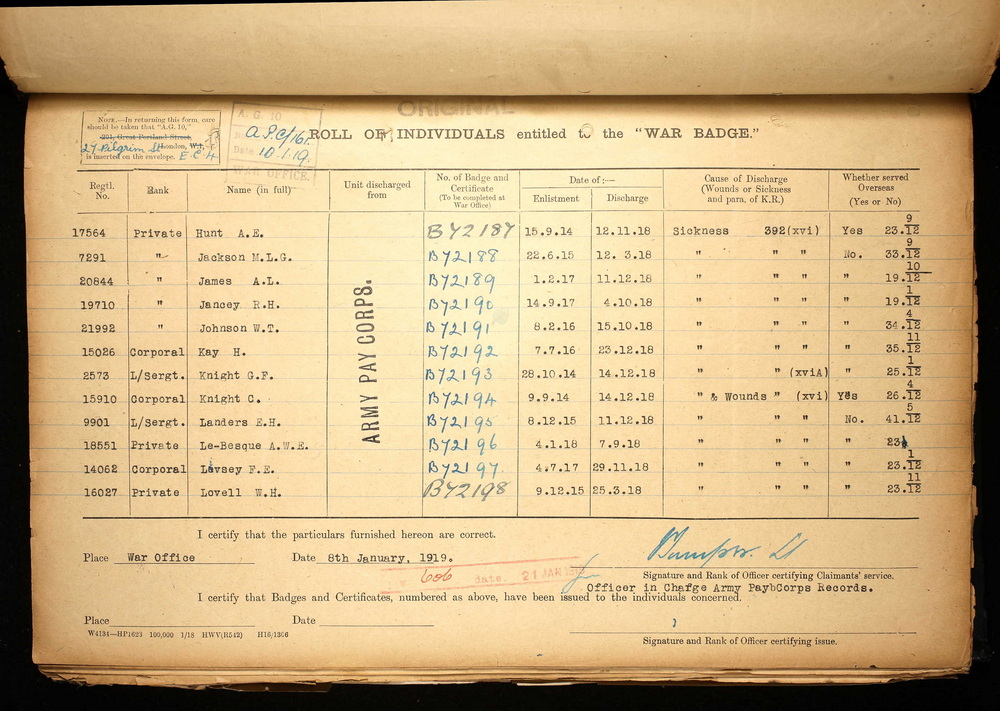 ORIGINAL
NOTE.—In returning this form, care
should be taken that "A.G. 10,"
201, Great Portland Street,
27 Pilgrim St London, W.1,
E.C.4
is inserted on the envelope.
A. G. 10
A.P.C/161.
Date 10.1.19.
WAR OFFICE.
ROLL OF INDIVIDUALS entitled to the "WAR BADGE."
Regtl. No. Rank Name (in full) Unit discharged from No. of Badge and Certificate (To be completed at War Office) Date of:— Enlistment Discharge Cause of Discharge (Wounds or Sickness and para. of K.R.) Whether served Overseas (Yes or No)
17564 Private Hunt A.E. B72187 15.9.14 12.11.18 Sickness 392(xvi) Yes 23.9/12
7291 " Jackson M.L.G. B72188 22.6.15 12. 3.18 " " " No. 33.9/12
20844 " James A.L. B72189 1.2.17 11.12.18 " " " " 19.10/12
19710 " Jancey R.H. B72190 14.9.17 4.10.18 " " " " 19.1/12
21992 " Johnson W.T. B72191 8.2.16 15.10.18 " " " " 34.4/12
15026 Corporal Kay H. B72192 7.7.16 23.12.18 " " " " 35.11/12
2573 L/Sergt. Knight G.F. B72193 28.10.14 14.12.18 " " (xviA) " 25.1/12
15910 Corporal Knight C. B72194 9.9.14 14.12.18 " & Wounds " (xvi) Yes 26.4/12
9901 L/Sergt. Landers E.H. B72195 8.12.15 11.12.18 " " " No. 41.5/12
18551 Private Le-Besque A.W.E. B72196 4.1.18 7.9.18 " " " " 23
14062 Corporal Livsey F.E. B72197 4.7.17 29.11.18 " " " " 23.1/12
16027 Private Lovell W.H. B72198 9.12.15 25.3.18 " " " " 23.11/12
ARMY PAY CORPS.
I certify that the particulars furnished hereon are correct.
Place War Office Date 8th January, 1919.
606 date. 21 JAN
Signature and Rank of Officer certifying Claimants' service.
Officer in Charge Army Pay Corps Records.
I certify that Badges and Certificates, numbered as above, have been issued to the individuals concerned.
Place Date
W4134—HP1623 100,000 1/18 HWV(R542) H16/1306
Signature and Rank of Officer certifying issue.